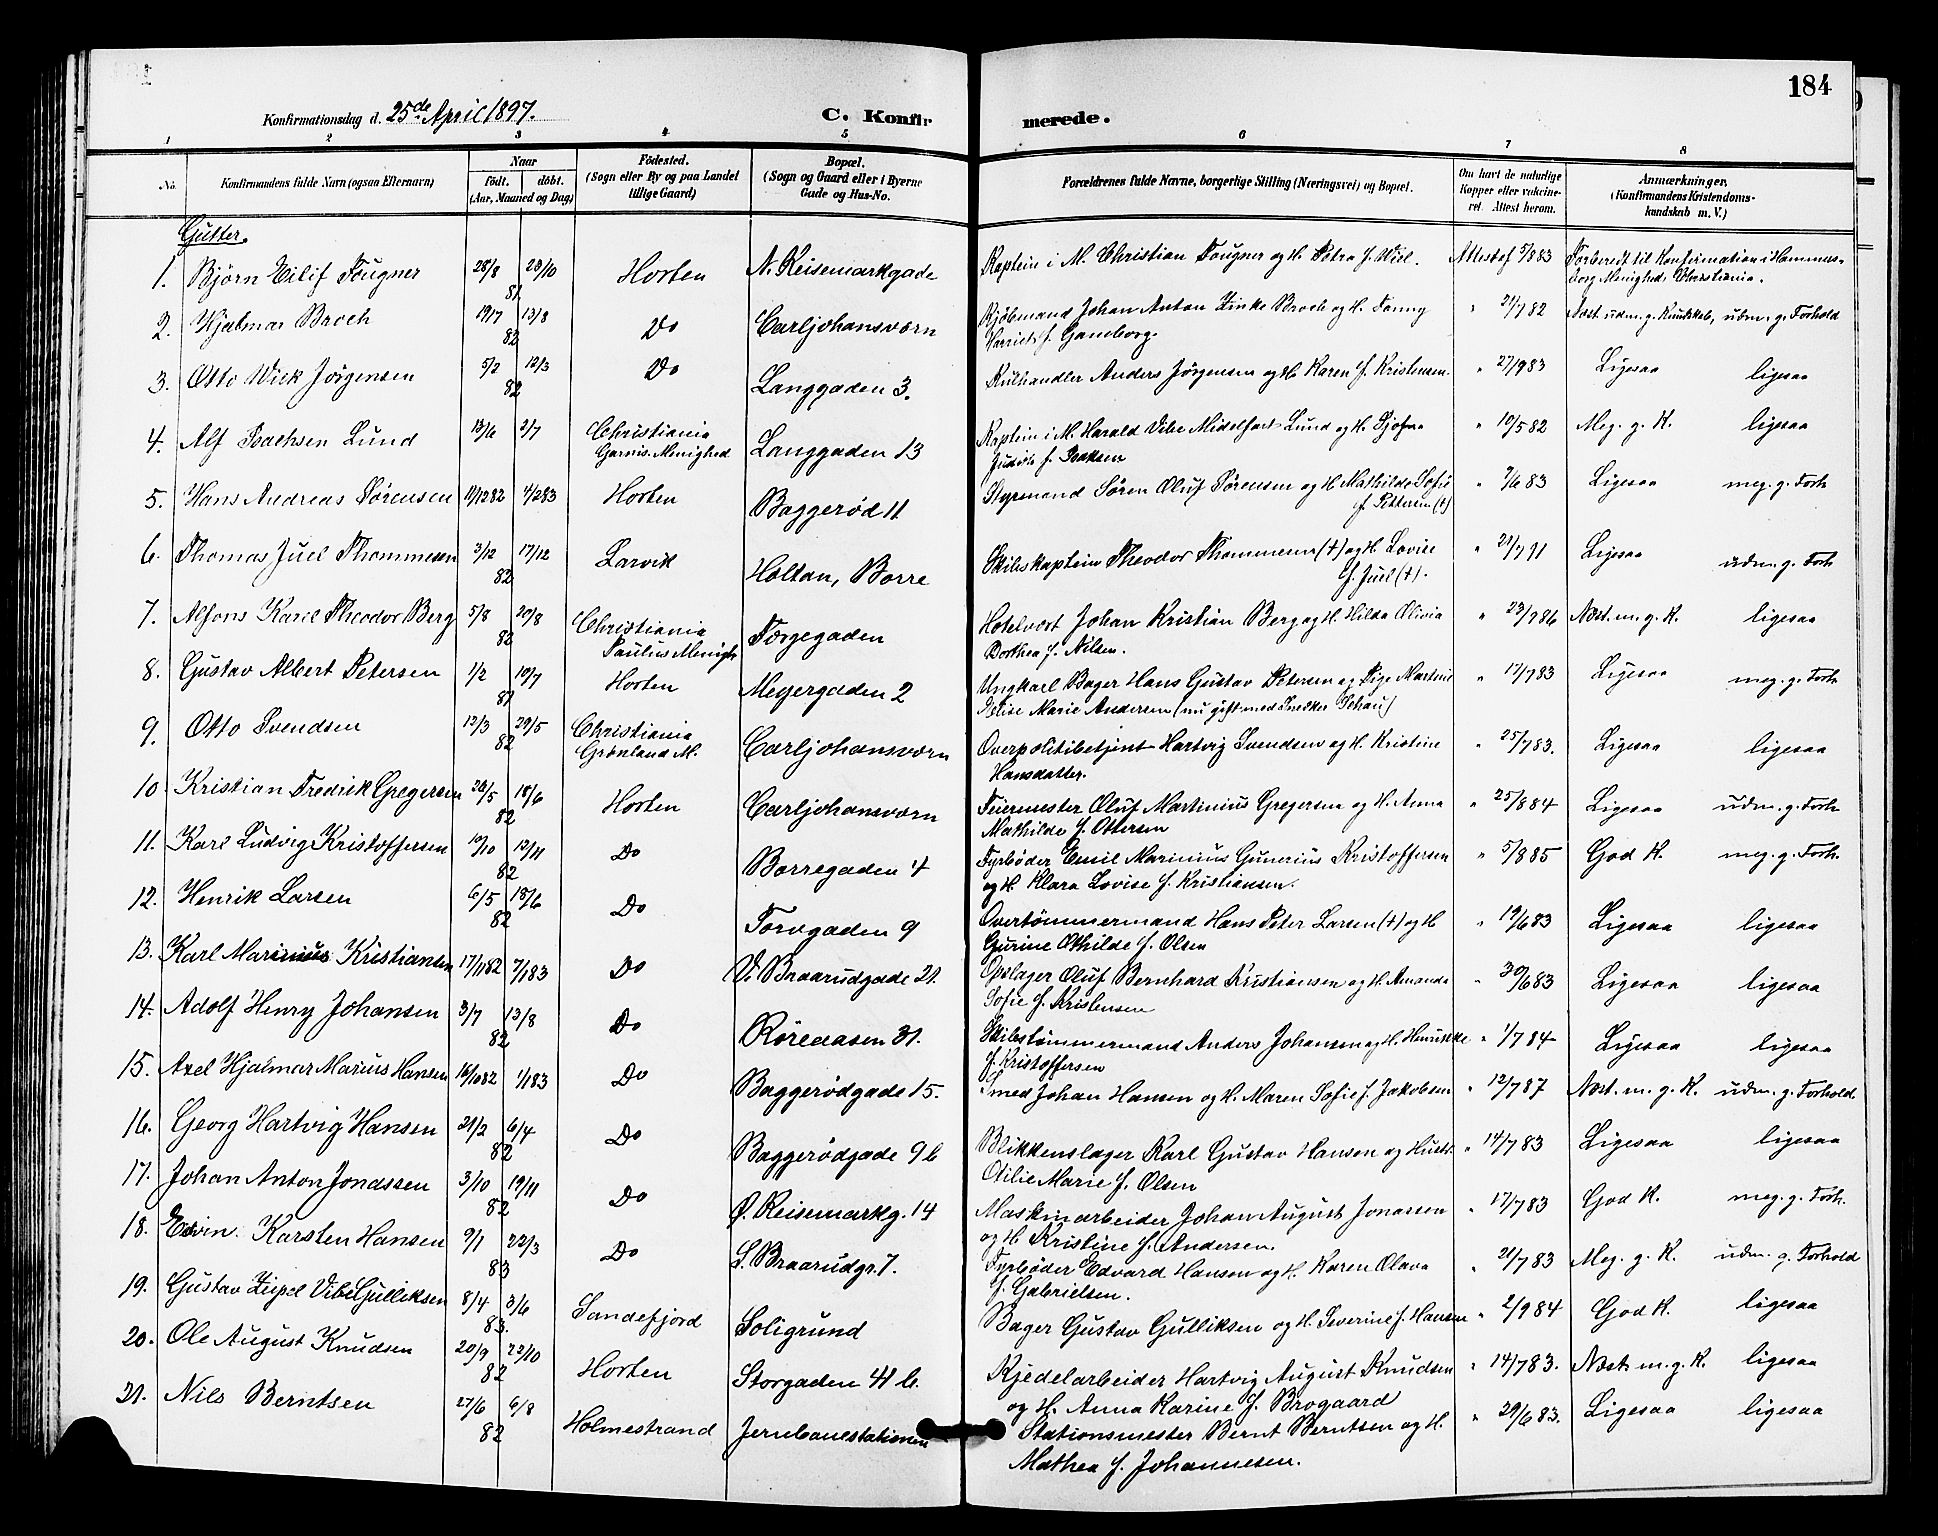 184
Konfirmationsdag d. 25de April 1897.
C. Konfirmerede.
1 2 3 4 5 6 7 8
No.
Konfirmandens fulde Navn (ogsaa Efternavn)
Naar
født. døbt.
(Aar, Maaned og Dag)
Fødested.
(Sogn eller By og paa Landet
tillige Gaard)
Bopæl.
(Sogn og Gaard eller i Byerne
Gade og Hus-No.
Forældrenes fulde Navne, borgerlige Stilling (Næringsvei) og Bopæl.
Om havt de naturlige
Kopper eller vakcine-
ret. Attest herom.
Anmærkninger.
(Konfirmandens Kristendoms-
kundskab m. V.)
Gutter.
1. Bjørn Eilif Fougner 28/8 81 23/10 Horten N. Keisemarkgade Kaptein i M. Christian Fougner og H. Petra f. Wiel. Attest af 5/8 83 Forberedt til Konfirmation i Hammers-
borg Menighed, Christiania.
2. Hjalmar Broch 19/7 82 13/8 Do Carljohansværn Kjøbmand Johan Anton Zinke Broch og H. Fanny
Harriet f. Gamborg. " 21/7 82 Næst. udm. g. Kundskab, udm. g. Forhold
3. Otto Wiek Jørgensen 5/2 82 12/3 Do Langgaden 3. Kulhandler Anders Jørgensen og H. Karen f. Kristensen. " 27/9 83 Ligesaa ligesaa
4. Alf Isachsen Lund 13/6 2/7 Christiania
Garnis. Menighed Langgaden 13 Kaptein i M. Harald Vibe Midelfart Lund og H.
Judith f. Isaksen " 10/5 82 Meg. g. K. ligesaa
5. Hans Andreas Sørensen 11/12 82 4/2 83 Horten Baggerød 11 Styrmand Søren Oluf Sørensen og H. Mathilde Sofie
f. Pettersen (†) " 7/6 83 Ligesaa meg. g. Forh
6. Thomas Juel Thommesen 3/12 82 17/12 Larvik Holtan, Borre Skibskaptein Theodor Thommesen (†) og H. Lovise
f. Juel (†). " 21/7 91 Ligesaa udm. g. Forh
7. Alfons Karel Theodor Berg 5/8 82 20/8 Christiania
Paulus Menigh Færgegaden Hotelvært Johan Kristian Berg og H. Hilda Olivia
Dorthea f. Nilsen. " 23/7 86 Næst. m. g. K. ligesaa
8. Gustav Albert Petersen 1/2 81 10/7 Horten Meyergaden 2 Ungkarl Bager Hans Gustav Petersen og Pige Martine
Elise Marie Andersen (nu gift med Snedker Schau) " 17/7 83 Ligesaa meg. g. Forh
9. Otto Svendsen 12/3 82 29/5 Christiania
Grønland M. Carljohansværn Overpolitibetjent Hartvig Svendsen og H. Kristine
Hansdatter. " 25/7 83. Ligesaa ligesaa
10. Kristian Fredrik Gregersen 26/5 82 18/6 Horten Carljohansværn Feiermester Oluf Martinius Gregersen og H. Anna
Mathilde f. Ottersen " 25/8 84 Ligesaa udm. g. Forh
11. Karl Ludvig Kristoffersen 10/10 82 12/11 Do Borregaden 4 Fyrbøder Emil Marinius Gunerius Kristoffersen
og H. Klara Lovise f. Kristiansen. " 5/8 85 God K. meg. g. Forh.
12. Henrik Larsen 6/5 82 18/6 Do Torvgaden 9 Overtømmermand Hans Peter Larsen (†) og H
Gurine Othilde f. Olsen " 19/6 83 Ligesaa ligesaa
13. Karl Marinius Kristiansen 17/11 82 7/1 83 Do V. Braarudgade 21. Opslager Oluf Bernhard Kristiansen og H. Amanda
Sofie f. Kristensen " 30/6 83 Ligesaa ligesaa
14. Adolf Henry Johansen 3/7 82 13/8 Do Røreaasen 31. Skibstømmermand Anders Johansen og H. Henrikke
f. Kristoffersen " 1/7 84 Ligesaa ligesaa
15. Axel Hjalmar Marius Hansen 16/10 82 1/1 83 Do Baggerødgade 15. Smed Johan Hansen og H. Maren Sofie f. Jakobsen " 12/7 87 Næst. m. g. K. udm. g. Forhold
16. Georg Hartvig Hansen 21/2 82 6/4 Do Baggerødgade 9 b Blikkenslager Karl Gustav Hansen og Hustr.
Otilie Marie f. Olsen " 14/7 83 Ligesaa ligesaa
17. Johan Anton Jonassen 3/10 82 19/11 Do Ø. Keisemarkg. 14 Maskinarbeider Johan August Jonassen
og H. Kristine f. Andersen. " 17/7 83 God K. meg. g. Forh.
18. Edvin Karsten Hansen 9/1 83 22/3 Do S. Braarudgr. 7. Fyrbøder Edvard Hansen og H. Karen Olava
f. Gabrielsen. " 21/7 83 Meg. g. K. udm. g. Forhold
19. Gustav Zeipel Vibe Gulliksen 8/4 83. 3/6 Sandefjord Soligrund Bager Gustav Gulliksen og H. Severine f. Hansen " 2/9 84 God K. ligesaa
20. Ole August Knudsen 20/9 82 22/10 Horten Storgaden 41 b. Kjedelarbeider Hartvig August Knudsen
og H. Anna Karine f. Brogaard " 14/7 83. Næst. m. g. K. ligesaa
21. Nils Berntsen 27/6 82 6/8 Holmestrand Jernbanestationen Stationsmester Bernt Berntsen og H.
Mathea f. Johannesen. " 29/6 83. Ligesaa ligesaa